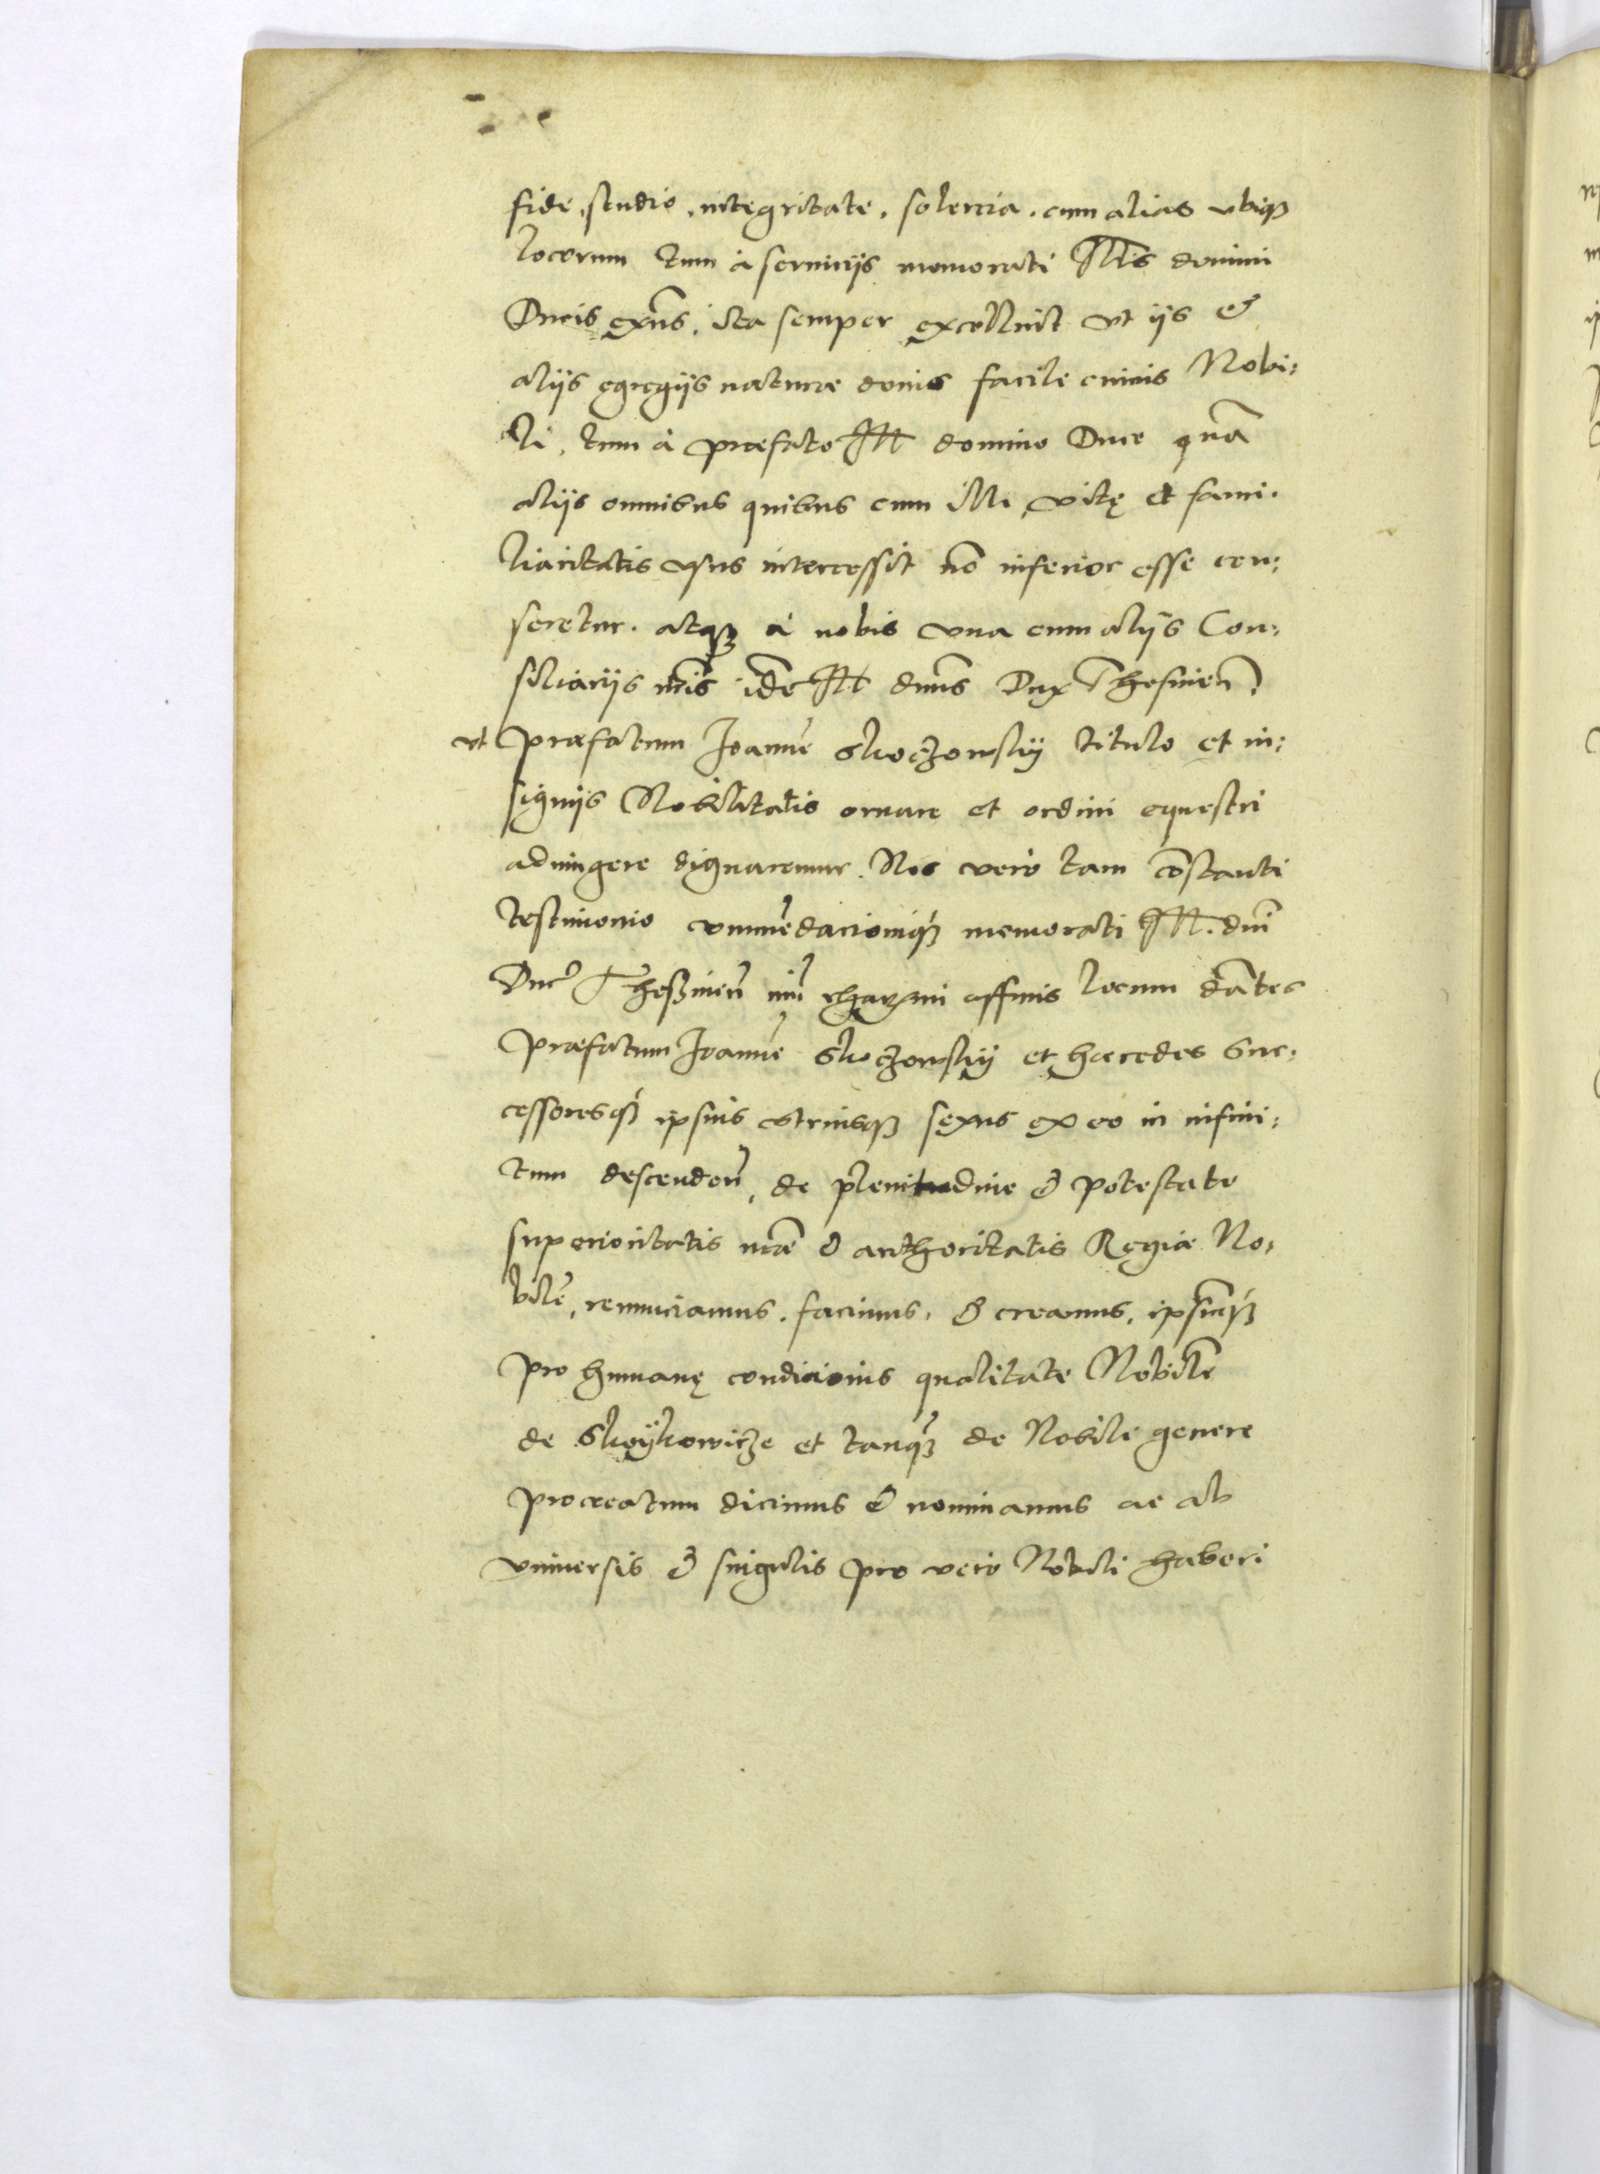 fide, studio, integritate, solercia, cum alias vbiqꝫ
locorum tum à seruicijs memorati Illis domini
Ducis exñs, ita semper excelluit vt ijs &
alijs egregijs naturae donis facile cuiuis Nobi:
li, tum à praefato Ill domino Duce quã
alijs omnibus quibus cum illi vitę et fami:
liaritatis vsus intercessit nõ inferior esse cen:
seretur. atqꝫ à nobis vna cum alijs Con:
siliarijs nr̃is idẽ Ill dnũs Dux Thesineñ.
vt praefatum Joannẽ Skoczowskÿ titulo et in:
signijs Nobilitatis ornare et ordini equestri
adiungere dignaremur. Nos verò tam cõstanti
testimonio commẽdacioniqꝫ memorati Ill. dnĩ
Duc̃ Theßineñ affinis locum dãtes
praefatum Joannẽ Skoczowskÿ et haeredes Suc:
cessoresqꝫ ipsius vtriusqꝫ sexus ex eo in infini:
tum descendeñ, de plenitudine & potestate
superioritatis nr̃ae & authoritatis Regiae No:
bilẽ, renunciamus, facimus, & creamus, ipsũqꝫ
pro humanę condicionis qualitate Nobilẽ
de Skoÿkowicze et tanqꝫ de Nobile genere
procreatum dicimus & nominamus ac ab
vniuersis & singulis pro vero Nobili haberi